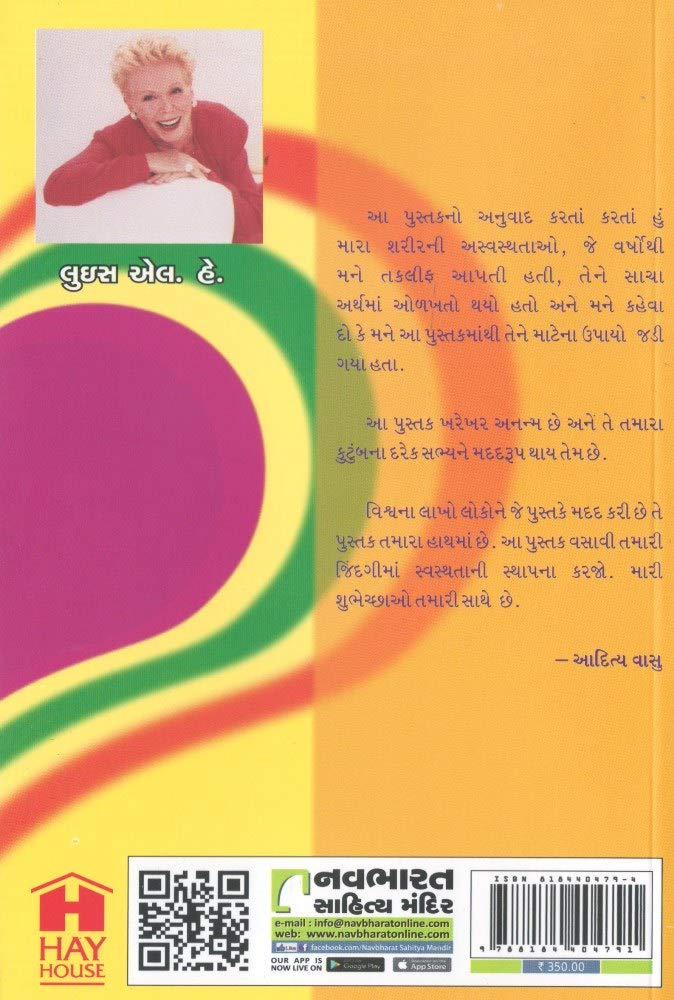 લુઇસ એલ. હે.
આ પુસ્તકનો અનુવાદ કરતાં કરતાં હું
મારા શરીરની અસ્વસ્થતાઓ, જે વર્ષોથી
મને તકલીફ આપતી હતી, તેને સાચા
અર્થમાં ઓળખતો થયો હતો અને મને કહેવા
દો કે મને આ પુસ્તકમાંથી તેને માટેના ઉપાયો જડી
ગયા હતા.
આ પુસ્તક ખરેખર અનન્મ છે અને તે તમારા
કુટુંબના દરેક સભ્યને મદદરૂપ થાય તેમ છે.
વિશ્વના લાખો લોકોને જે પુસ્તકે મદદ કરી છે તે
પુસ્તક તમારા હાથમાં છે. આ પુસ્તક વસાવી તમારી
જિંદગીમાં સ્વસ્થતાની સ્થાપના કરજો. મારી
શુભેચ્છાઓ તમારી સાથે છે.
– આદિત્ય વાસુ
HAY
HOUSE
નવભારત
સાહિત્ય મંદિર
e-mail : info@navbharatonline.com
web: www.navbharatonline.com
Like facebook.com/Navbharat Sahitya Mandir
OUR APP IS
NOW LIVE ON
Google Play
App Store
ISBN 818440479-4
9 788184 404791
₹ 350.00